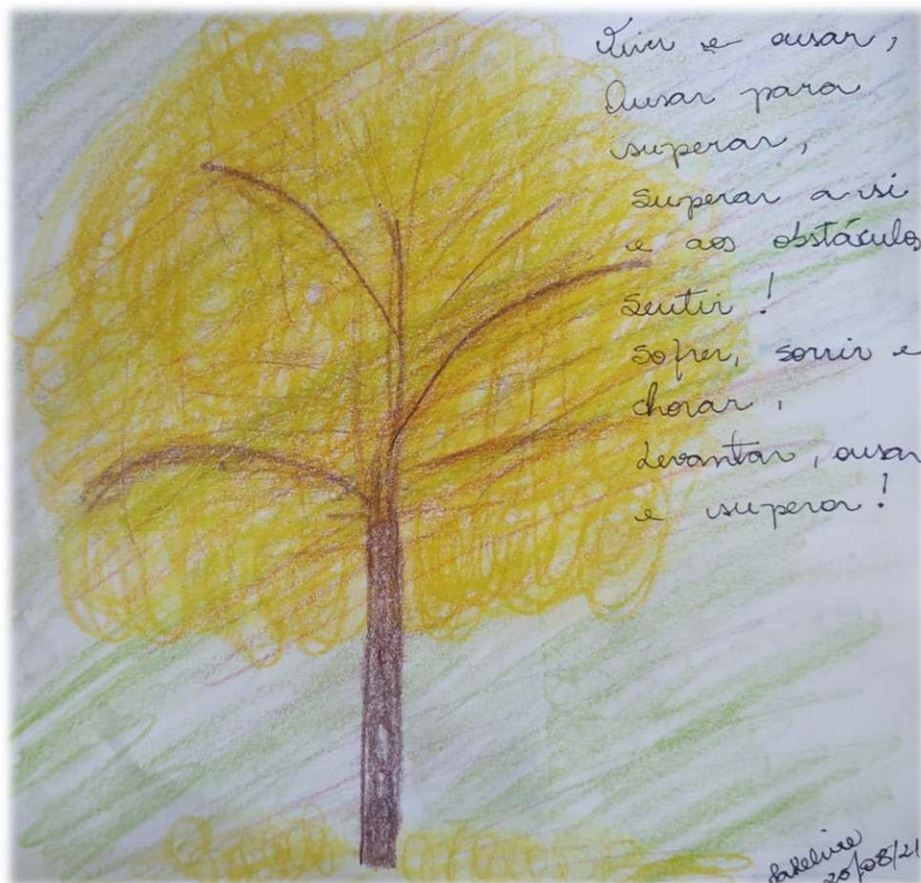 Viver e ousar,
Ousar para
superar,
superar a si
e aos obstáculos
sentir!
Sofrer, sorrir e
chorar,
Levantar, ousar
e superar!
Jakeline
20/08/21